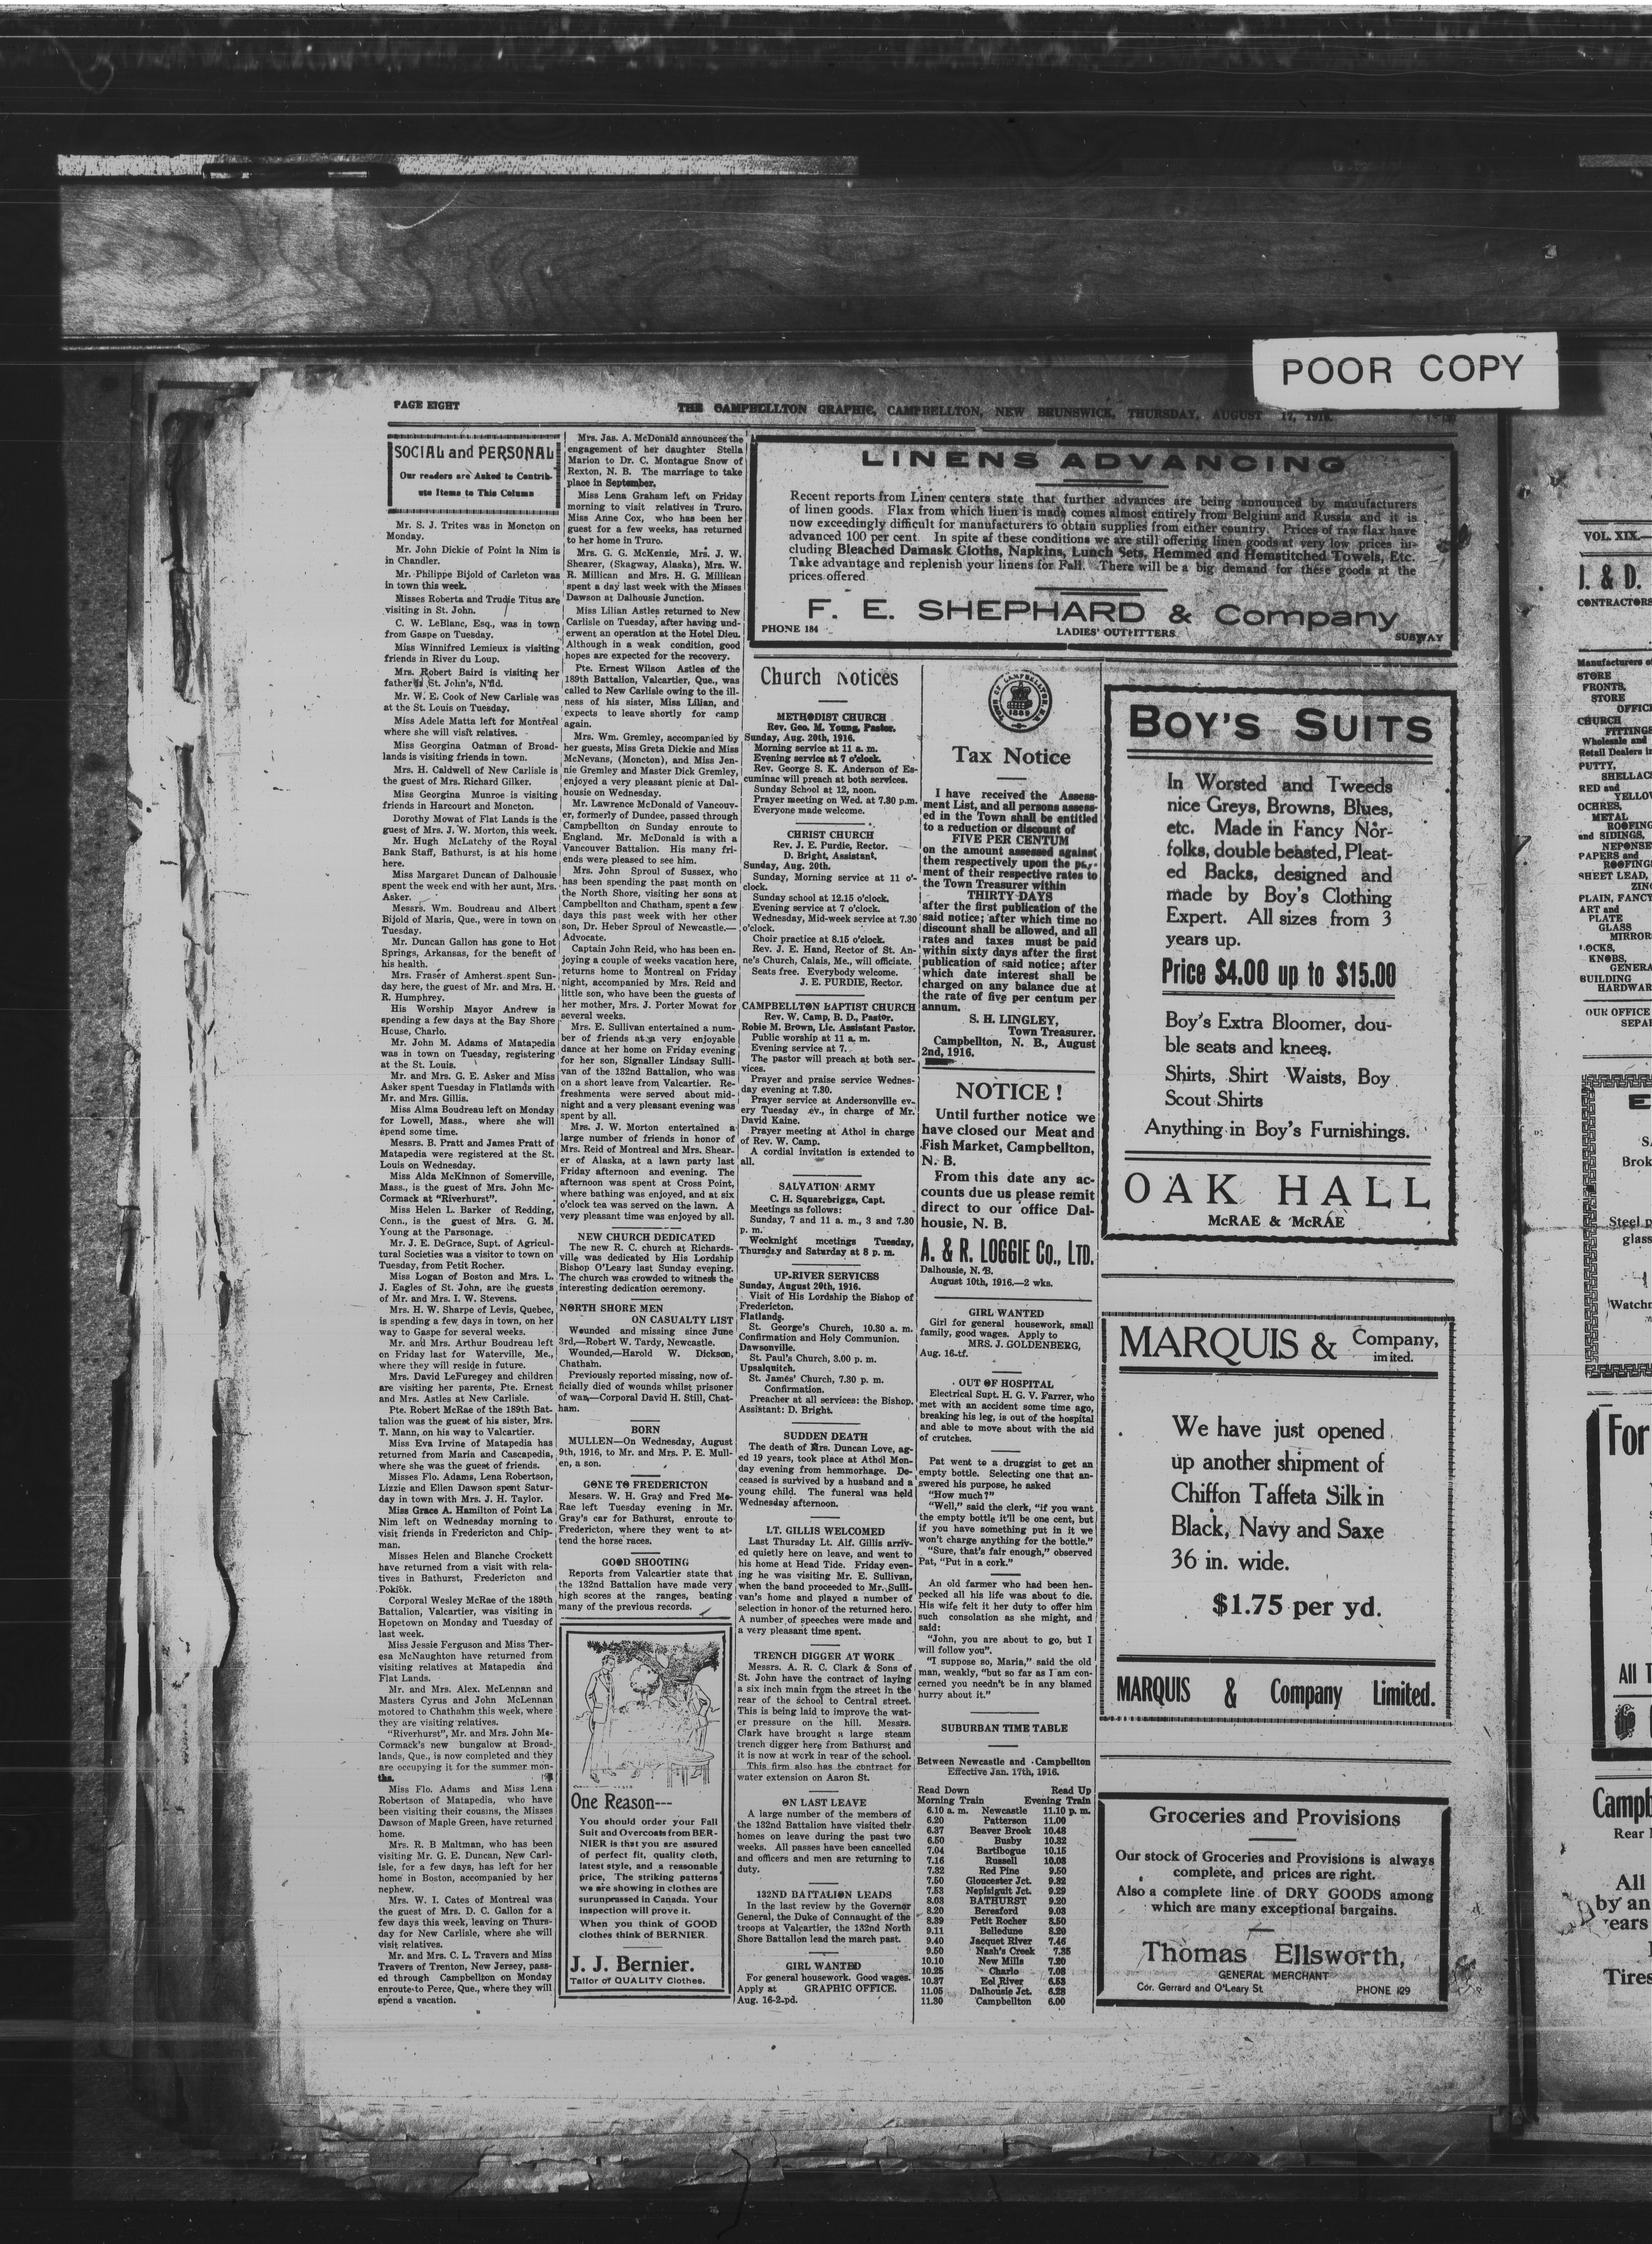 POOR COPY
PAGE EIGHT
THE CAMPBELLTON GRAPHIC, CAMPBELLTON, NEW BRUNSWICK, THURSDAY, AUGUST 17, 1916.
SOCIAL and PERSONAL
Our readers are Asked to Contrib-
ute Items to This Column
Mr. S. J. Trites was in Moncton on
Monday.
Mr. John Dickie of Point la Nim is
in Chandler.
Mr. Philippe Bijold of Carleton was
in town this week.
Misses Roberta and Trudie Titus are
visiting in St. John.
C. W. LeBlanc, Esq., was in town
from Gaspe on Tuesday.
Miss Winnifred Lemieux is visiting
friends in River du Loup.
Mrs. Robert Baird is visiting her
father St. John's, N'fld.
Mr. W. E. Cook of New Carlisle was
at the St. Louis on Tuesday.
Miss Adele Matta left for Montreal
where she will visit relatives.
Miss Georgina Oatman of Broad-
lands is visiting friends in town.
Mrs. H. Caldwell of New Carlisle is
the guest of Mrs. Richard Gilker.
Miss Georgina Munroe is visiting
friends in Harcourt and Moncton.
Dorothy Mowat of Flat Lands is the
guest of Mrs. J. W. Morton, this week.
Mr. Hugh McLatchy of the Royal
Bank Staff, Bathurst, is at his home
here.
Miss Margaret Duncan of Dalhousie
spent the week end with her aunt, Mrs.
Asker.
Messrs. Wm. Boudreau and Albert
Bijold of Maria, Que., were in town on
Tuesday.
Mr. Duncan Gallon has gone to Hot
Springs, Arkansas, for the benefit of
his health.
Mrs. Fraser of Amherst spent Sun-
day here, the guest of Mr. and Mrs. H.
R. Humphrey.
His Worship Mayor Andrew is
spending a few days at the Bay Shore
House, Charlo.
Mr. John M. Adams of Matapedia
was in town on Tuesday, registering
at the St. Louis.
Mr. and Mrs. G. E. Asker and Miss
Asker spent Tuesday in Flatlands with
Mr. and Mrs. Gillis.
Miss Alma Boudreau left on Monday
for Lowell, Mass., where she will
spend some time.
Messrs. B. Pratt and James Pratt of
Matapedia were registered at the St.
Louis on Wednesday.
Miss Alda McKinnon of Somerville,
Mass., is the guest of Mrs. John Mc-
Cormack at "Riverhurst".
Miss Helen L. Barker of Redding,
Conn., is the guest of Mrs. G. M.
Young at the Parsonage.
Mr. J. E. DeGrace, Supt. of Agricul-
tural Societies was a visitor to town on
Tuesday, from Petit Rocher.
Miss Logan of Boston and Mrs. L.
J. Eagles of St. John, are the guests
of Mr. and Mrs. I. W. Stevens.
Mrs. H. W. Sharpe of Levis, Quebec,
is spending a few days in town, on her
way to Gaspe for several weeks.
Mr. and Mrs. Arthur Boudreau left
on Friday last for Waterville, Me.,
where they will reside in future.
Mrs. David LeFuregey and children
are visiting her parents, Pte. Ernest
and Mrs. Astles at New Carlisle.
Pte. Robert McRae of the 189th Bat-
talion was the guest of his sister, Mrs.
T. Mann, on his way to Valcartier.
Miss Eva Irvine of Matapedia has
returned from Maria and Cascapedia,
where she was the guest of friends.
Misses Flo. Adams, Lena Robertson,
Lizzie and Ellen Dawson spent Satur-
day in town with Mrs. J. H. Taylor.
Miss Grace A. Hamilton of Point La
Nim left on Wednesday morning to
visit friends in Fredericton and Chip-
man.
Misses Helen and Blanche Crockett
have returned from a visit with rela-
tives in Bathurst, Fredericton and
Pokiok.
Corporal Wesley McRae of the 189th
Battalion, Valcartier, was visiting in
Hopetown on Monday and Tuesday of
last week.
Miss Jessie Ferguson and Miss Ther-
esa McNaughton have returned from
visiting relatives at Matapedia and
Flat Lands.
Mr. and Mrs. Alex. McLennan and
Masters Cyrus and John McLennan
motored to Chathahm this week, where
they are visiting relatives.
"Riverhurst", Mr. and Mrs. John Mc-
Cormack's new bungalow at Broad-
lands, Que., is now completed and they
are occupying it for the summer mon-
ths.
Miss Flo. Adams and Miss Lena
Robertson of Matapedia, who have
been visiting their cousins, the Misses
Dawson of Maple Green, have returned
home.
Mrs. R. B Maltman, who has been
visiting Mr. G. E. Duncan, New Carl-
isle, for a few days, has left for her
home in Boston, accompanied by her
nephew.
Mrs. W. I. Cates of Montreal was
the guest of Mrs. D. C. Gallon for a
few days this week, leaving on Thurs-
day for New Carlisle, where she will
visit relatives.
Mr. and Mrs. C. L. Travers and Miss
Travers of Trenton, New Jersey, pass-
ed through Campbellton on Monday
enroute to Perce, Que., where they will
spend a vacation.
Mrs. Jas. A. McDonald announces the
engagement of her daughter Stella
Marion to Dr. C. Montague Snow of
Rexton, N. B. The marriage to take
place in September.
Miss Lena Graham left on Friday
morning to visit relatives in Truro.
Miss Anne Cox, who has been her
guest for a few weeks, has returned
to her home in Truro.
Mrs. G. G. McKenzie, Mrs. J. W.
Shearer, (Skagway, Alaska), Mrs. W.
R. Millican and Mrs. H. G. Millican
spent a day last week with the Misses
Dawson at Dalhousie Junction.
Miss Lilian Astles returned to New
Carlisle on Tuesday, after having und-
erwent an operation at the Hotel Dieu.
Although in a weak condition, good
hopes are expected for the recovery.
Pte. Ernest Wilson Astles of the
189th Battalion, Valcartier, Que., was
called to New Carlisle owing to the ill-
ness of his sister, Miss Lilian, and
expects to leave shortly for camp
again.
Mrs. Wm. Gremley, accompanied by
her guests, Miss Greta Dickie and Miss
McNevans, (Moncton), and Miss Jen-
nie Gremley and Master Dick Gremley,
enjoyed a very pleasant picnic at Dal-
housie on Wednesday.
Mr. Lawrence McDonald of Vancouv-
er, formerly of Dundee, passed through
Campbellton on Sunday enroute to
England. Mr. McDonald is with a
Vancouver Battalion. His many fri-
ends were pleased to see him.
Mrs. John Sproul of Sussex, who
has been spending the past month on
the North Shore, visiting her sons at
Campbellton and Chatham, spent a few
days this past week with her other
son, Dr. Heber Sproul of Newcastle.—
Advocate.
Captain John Reid, who has been en-
joying a couple of weeks vacation here,
returns home to Montreal on Friday
night, accompanied by Mrs. Reid and
little son, who have been the guests of
her mother, Mrs. J. Porter Mowat for
several weeks.
Mrs. E. Sullivan entertained a num-
ber of friends at a very enjoyable
dance at her home on Friday evening
for her son, Signaller Lindsay Sulli-
van of the 132nd Battalion, who was
on a short leave from Valcartier. Re-
freshments were served about mid-
night and a very pleasant evening was
spent by all.
Mrs. J. W. Morton entertained a
large number of friends in honor of
Mrs. Reid of Montreal and Mrs. Shear-
er of Alaska, at a lawn party last
Friday afternoon and evening. The
afternoon was spent at Cross Point,
where bathing was enjoyed, and at six
o'clock tea was served on the lawn. A
very pleasant time was enjoyed by all.
NEW CHURCH DEDICATED
The new R. C. church at Richards-
ville was dedicated by His Lordship
Bishop O'Leary last Sunday evening.
The church was crowded to witness the
interesting dedication ceremony.
NORTH SHORE MEN
ON CASUALTY LIST
Wounded and missing since June
3rd,—Robert W. Tardy, Newcastle.
Wounded,—Harold W. Dickson,
Chatham.
Previously reported missing, now of-
ficially died of wounds whilst prisoner
of war,—Corporal David H. Still, Chat-
ham.
BORN
MULLEN—On Wednesday, August
9th, 1916, to Mr. and Mrs. P. E. Mull-
en, a son.
GONE TO FREDERICTON
Messrs. W. H. Gray and Fred Mc-
Rae left Tuesday evening in Mr.
Gray's car for Bathurst, enroute to
Fredericton, where they went to at-
tend the horse races.
GOOD SHOOTING
Reports from Valcartier state that
the 132nd Battalion have made very
high scores at the ranges, beating
many of the previous records.
One Reason---
You should order your Fall
Suit and Overcoats from BER-
NIER is that you are assured
of perfect fit, quality cloth,
latest style, and a reasonable
price, The striking patterns
we are showing in clothes are
surunpressed in Canada. Your
inspection will prove it.
When you think of GOOD
clothes think of BERNIER.
J. J. Bernier.
Tailor of QUALITY Clothes.
LINENS ADVANCING
Recent reports from Linen centers state that further advances are being announced by manufacturers
of linen goods. Flax from which linen is made comes almost entirely from Belgium and Russia and it is
now exceedingly difficult for manufacturers to obtain supplies from either country. Prices of raw flax have
advanced 100 per cent. In spite af these conditions we are still offering linen goods at very low prices in-
cluding Bleached Damask Cloths, Napkins, Lunch Sets, Hemmed and Hemstitched Towels, Etc.
Take advantage and replenish your linens for Fall. There will be a big demand for these goods at the
prices offered.
F. E. SHEPHARD & Company
PHONE 184
LADIES' OUTFITTERS
SUBWAY
Church Notices
METHODIST CHURCH
Rev. Geo. M. Young, Pastor.
Sunday, Aug. 20th, 1916.
Morning service at 11 a. m.
Evening service at 7 o'clock.
Rev. George S. K. Anderson of Es-
cuminac will preach at both services.
Sunday School at 12, noon.
Prayer meeting on Wed. at 7.30 p.m.
Everyone made welcome.
CHRIST CHURCH
Rev. J. E. Purdie, Rector.
D. Bright, Assistant.
Sunday, Aug. 20th.
Sunday, Morning service at 11 o'-
clock.
Sunday school at 12.15 o'clock.
Evening service at 7 o'clock.
Wednesday, Mid-week service at 7.30
o'clock.
Choir practice at 8.15 o'clock.
Rev. J. E. Hand, Rector of St. An-
ne's Church, Calais, Me., will officiate.
Seats free. Everybody welcome.
J. E. PURDIE, Rector.
CAMPBELLTON BAPTIST CHURCH
Rev. W. Camp, B. D., Pastor.
Robie M. Brown, Lic. Assistant Pastor.
Public worship at 11 a. m.
Evening service at 7.
The pastor will preach at both ser-
vices.
Prayer and praise service Wednes-
day evening at 7.30.
Prayer service at Andersonville ev-
ery Tuesday ev., in charge of Mr.
David Kaine.
Prayer meeting at Athol in charge
of Rev. W. Camp.
A cordial invitation is extended to
all.
SALVATION ARMY
C. H. Squarebriggs, Capt.
Meetings as follows:
Sunday, 7 and 11 a. m., 3 and 7.30
p. m.
Weeknight meetings Tuesday,
Thursday and Saturday at 8 p. m.
UP-RIVER SERVICES
Sunday, August 20th, 1916.
Visit of His Lordship the Bishop of
Fredericton.
Flatlands.
St. George's Church, 10.30 a. m.
Confirmation and Holy Communion.
Dawsonville.
St. Paul's Church, 3.00 p. m.
Upsalquitch.
St. James' Church, 7.30 p. m.
Confirmation.
Preacher at all services: the Bishop.
Assistant: D. Bright.
SUDDEN DEATH
The death of Mrs. Duncan Love, ag-
ed 19 years, took place at Athol Mon-
day evening from hemorrhage. De-
ceased is survived by a husband and a
young child. The funeral was held
Wednesday afternoon.
LT. GILLIS WELCOMED
Last Thursday Lt. Alf. Gillis arriv-
ed quietly here on leave, and went to
his home at Head Tide. Friday even-
ing he was visiting Mr. E. Sullivan,
when the band proceeded to Mr. Sulli-
van's home and played a number of
selection in honor of the returned hero.
A number of speeches were made and
a very pleasant time spent.
TRENCH DIGGER AT WORK
Messrs. A. R. C. Clark & Sons of
St. John have the contract of laying
a six inch main from the street in the
rear of the school to Central street.
This is being laid to improve the wat-
er pressure on the hill. Messrs.
Clark have brought a large steam
trench digger here from Bathurst and
it is now at work in rear of the school.
This firm also has the contract for
water extension on Aaron St.
ON LAST LEAVE
A large number of the members of
the 132nd Battalion have visited their
homes on leave during the past two
weeks. All passes have been cancelled
and officers and men are returning to
duty.
132ND BATTALION LEADS
In the last review by the Governor
General, the Duke of Connaught of the
troops at Valcartier, the 132nd North
Shore Battalion lead the march past.
GIRL WANTED
For general housework. Good wages.
Apply at GRAPHIC OFFICE.
Aug. 16-2-pd.
1889
Tax Notice
I have received the Assess-
ment List, and all persons assess-
ed in the Town shall be entitled
to a reduction or discount of
FIVE PER CENTUM
on the amount assessed against
them respectively upon the pay-
ment of their respective rates to
the Town Treasurer within
THIRTY DAYS
after the first publication of the
said notice; after which time no
discount shall be allowed, and all
rates and taxes must be paid
within sixty days after the first
publication of said notice; after
which date interest shall be
charged on any balance due at
the rate of five per centum per
annum.
S. H. LINGLEY,
Town Treasurer.
Campbellton, N. B., August
2nd, 1916.
NOTICE !
Until further notice we
have closed our Meat and
Fish Market, Campbellton,
N. B.
From this date any ac-
counts due us please remit
direct to our office Dal-
housie, N. B.
A. & R. LOGGIE Co., LTD.
Dalhousie, N. B.
August 10th, 1916.—2 wks.
GIRL WANTED
Girl for general housework, small
family, good wages. Apply to
MRS. J. GOLDENBERG,
Aug. 16-tf.
OUT OF HOSPITAL
Electrical Supt. H. G. V. Farrer, who
met with an accident some time ago,
breaking his leg, is out of the hospital
and able to move about with the aid
of crutches.
Pat went to a druggist to get an
empty bottle. Selecting one that an-
swered his purpose, he asked
"How much?"
"Well," said the clerk, "if you want
the empty bottle it'll be one cent, but
if you have something put in it we
won't charge anything for the bottle."
"Sure, that's fair enough," observed
Pat, "Put in a cork."
An old farmer who had been hen-
pecked all his life was about to die.
His wife felt it her duty to offer him
such consolation as she might, and
said:
"John, you are about to go, but I
will follow you".
"I suppose so, Maria," said the old
man, weakly, "but so far as I am con-
cerned you needn't be in any blamed
hurry about it."
SUBURBAN TIME TABLE
Between Newcastle and Campbellton
Effective Jan. 17th, 1916.
Read Down Read Up
Morning Train Evening Train
6.10 a. m. Newcastle 11.10 p. m.
6.20 Patterson 11.00
6.37 Beaver Brook 10.48
6.50 Busby 10.32
7.04 Bartibogue 10.15
7.16 Russell 10.03
7.32 Red Pine 9.50
7.50 Gloucester Jct. 9.32
7.53 Nepisiguit Jct. 9.29
8.03 BATHURST 9.20
8.20 Beresford 9.03
8.39 Petit Rocher 8.50
9.11 Belledune 8.20
9.40 Jacquet River 7.46
9.50 Nash's Creek 7.35
10.10 New Mills 7.20
10.25 Charlo 7.08
10.37 Eel River 6.53
11.05 Dalhousie Jct. 6.28
11.30 Campbellton 6.00
BOY'S SUITS
In Worsted and Tweeds
nice Greys, Browns, Blues,
etc. Made in Fancy Nor-
folks, double beasted, Pleat-
ed Backs, designed and
made by Boy's Clothing
Expert. All sizes from 3
years up.
Price $4.00 up to $15.00
Boy's Extra Bloomer, dou-
ble seats and knees.
Shirts, Shirt Waists, Boy
Scout Shirts
Anything in Boy's Furnishings.
OAK HALL
McRAE & McRAE
MARQUIS & Company,
imited.
We have just opened
up another shipment of
Chiffon Taffeta Silk in
Black, Navy and Saxe
36 in. wide.
$1.75 per yd.
MARQUIS & Company Limited.
Groceries and Provisions
Our stock of Groceries and Provisions is always
complete, and prices are right.
Also a complete line of DRY GOODS among
which are many exceptional bargains.
Thomas Ellsworth,
GENERAL MERCHANT
Cor. Gerrard and O'Leary St.
PHONE 129
VOL. XIX.—
J. & D.
CONTRACTORS
Manufacturers of
STORE
FRONTS,
STORE
OFFICE
CHURCH
FITTINGS
Wholesale and
Retail Dealers in
PUTTY,
SHELLAC
RED and
YELLOW
OCHRES,
METAL
ROOFING
and SIDINGS,
NEPONSE
PAPERS and
ROOFING
SHEET LEAD,
ZINC
PLAIN, FANCY
ART and
PLATE
GLASS
MIRROR
LOCKS,
KNOBS,
GENERA
BUILDING
HARDWAR
OUR OFFICE
SEPA
E
Brok
Steel p
glass
Watchm
For
All T
Campb
Rear
All
by an
years
Tires